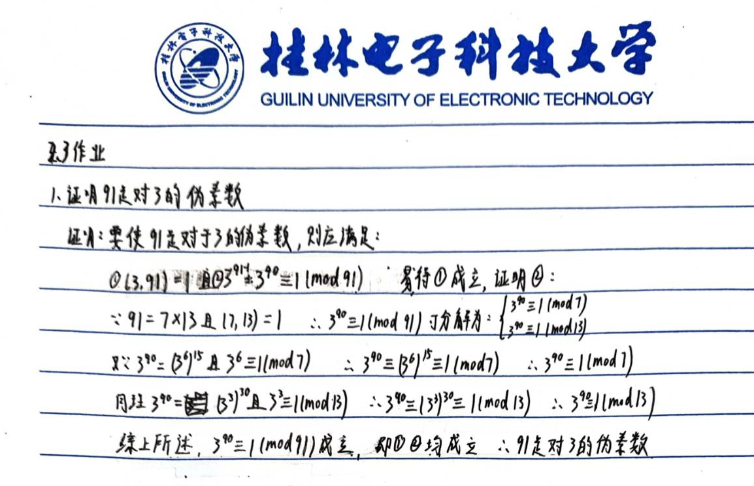 桂林电子科技大学
GUILIN UNIVERSITY OF ELECTRONIC TECHNOLOGY
作业
1.证明91是对3的伪素数
证明:要使91是对于3的伪素数,则应满足:
①(3,91)=1且②3^(91-1)=3^90≡1(mod 91) 易得①成立,证明②:
∵91=7×13且(7,13)=1 ∴3^90≡1(mod 91)可分解为:{3^90≡1(mod7)
3^90≡1(mod13)
又∵3^90=(3^6)^15且3^6≡1(mod7) ∴3^90≡(3^6)^15≡1(mod7) ∴3^90≡1(mod7)
同理3^90=(3^3)^30且3^3≡1(mod13) ∴3^90≡(3^3)^30≡1(mod13) ∴3^90≡1(mod13)
综上所述,3^90≡1(mod91)成立,即①②均成立 ∴91是对3的伪素数